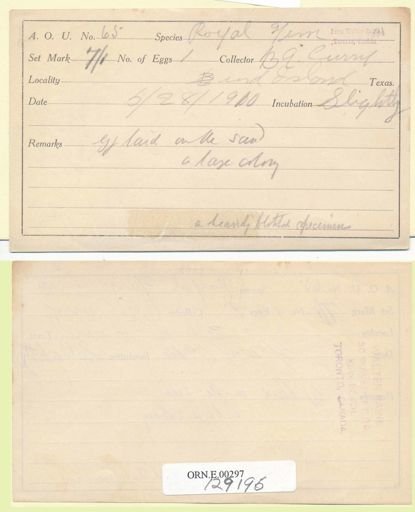 A. O. U. No. 65 Species Royal Tern
Set Mark 7/1 No. of Eggs 1 Collector B.A. Curry
Locality Bird Island Texas.
Date 5/28/1910 Incubation Slightly
Remarks egg laid on the sand
a large colony
a heavily blotched specimen
TORONTO, CANADA
ORN.E.00297
129196